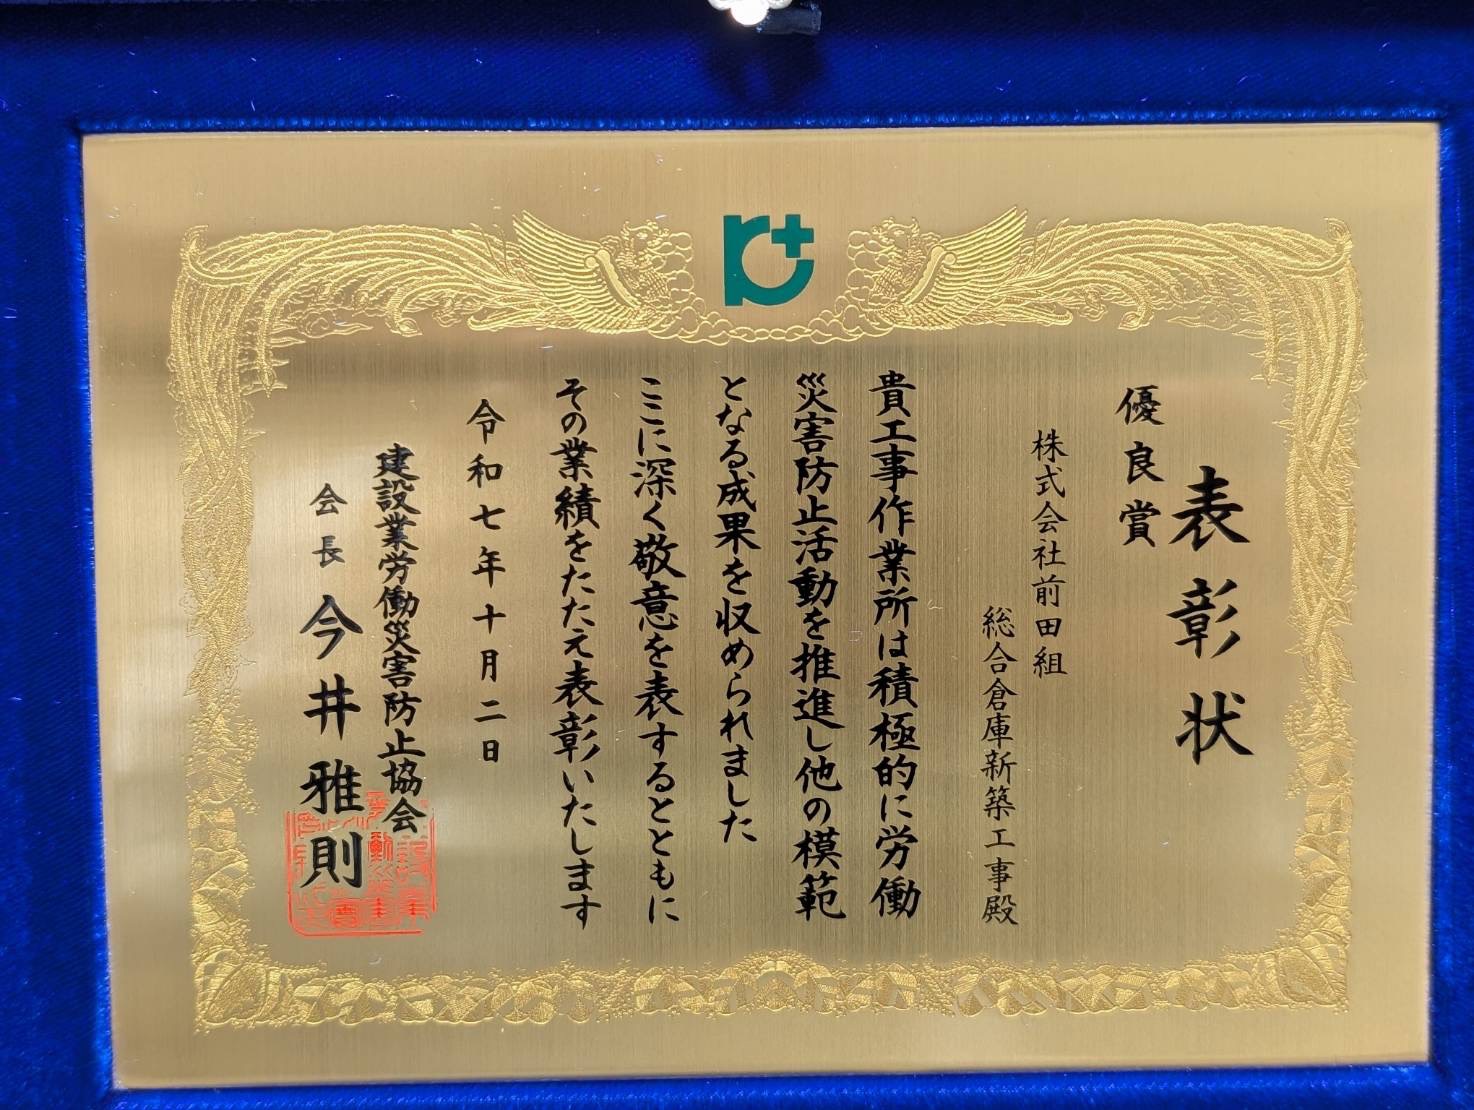 表彰状
優良賞
株式会社前田組
総合倉庫新築工事殿
貴工事作業所は積極的に労働
災害防止活動を推進し他の模範
となる成果を収められました
ここに深く敬意を表するとともに
その業績をたたえ表彰いたします
令和七年十月二日
建設業労働災害防止協会
会長 今井雅則